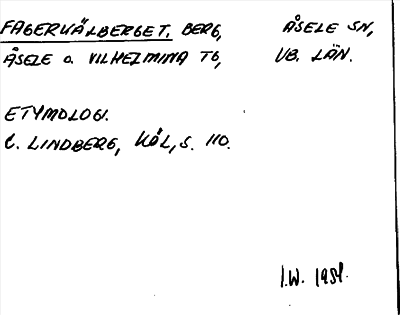 FAGERKÄLBERGET, BERG, ÅSELE SN,
ÅSELE O. VILHELMINA TG, VB. LÄN.
ETYMOLOGI.
C. LINDBERG, KÖL, S. 110.
I.W. 1984.